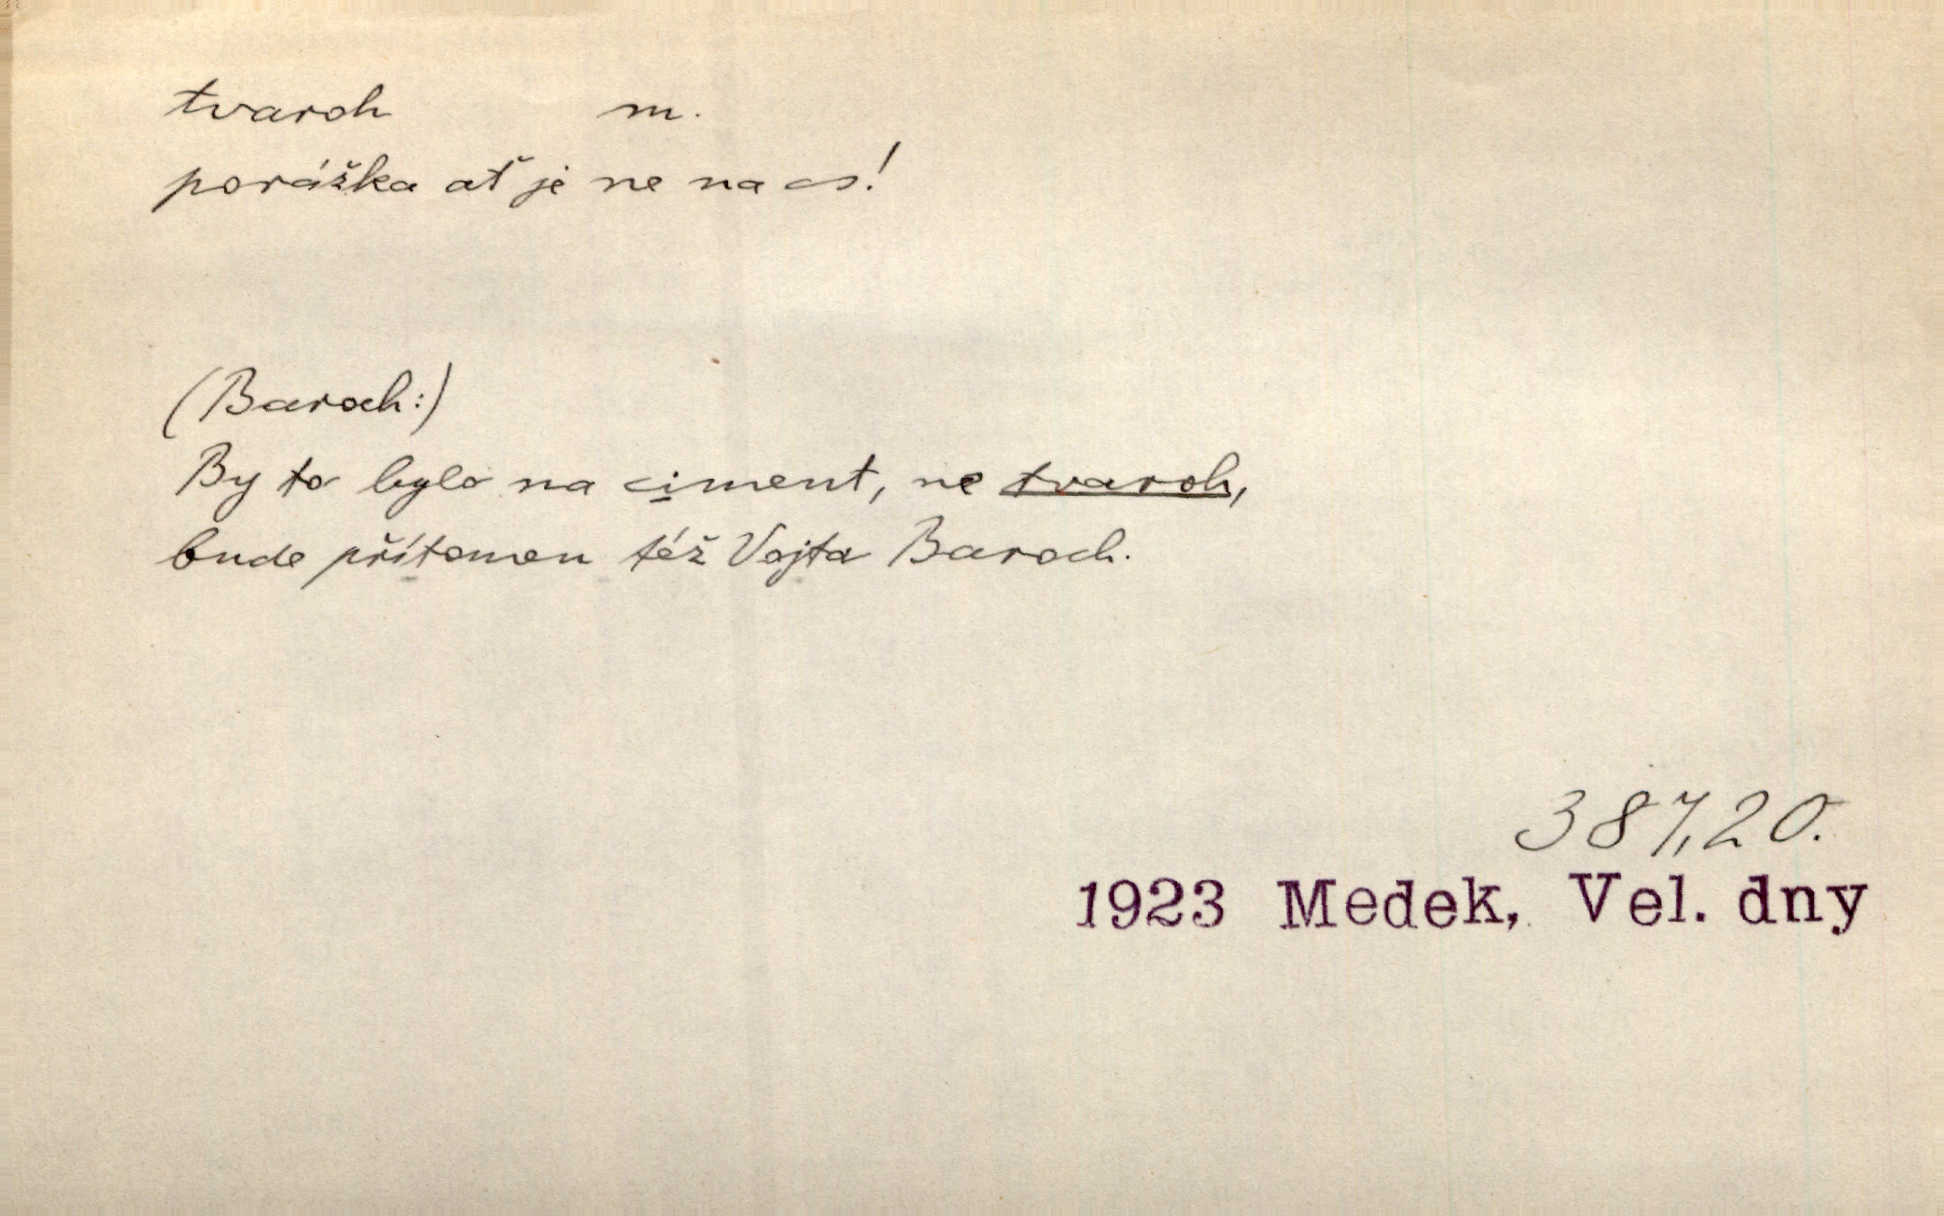 tvaroh m.
porážka ať je ne na co!
(Baroch:)
By to bylo na ciment, ne tvaroh,
bude přítomen též Vojta Baroch.
387,20.
1923 Medek, Vel. dny